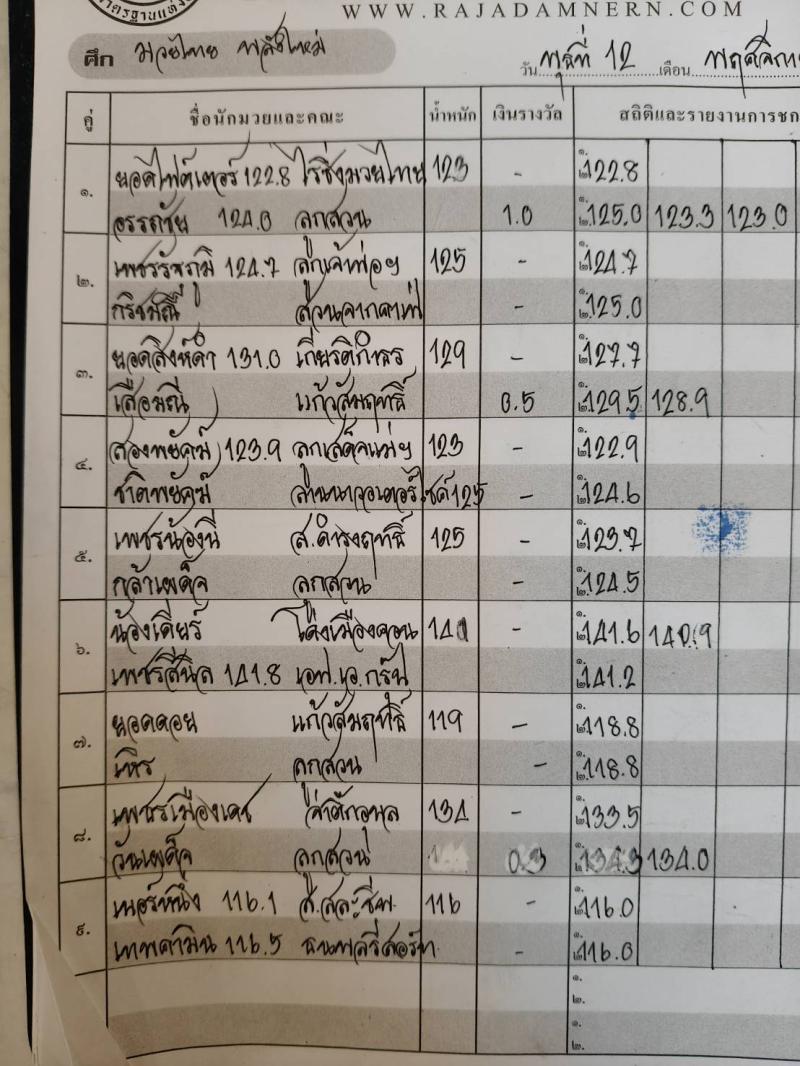 WWW.RAJADAMNERN.COM
ศึก มวยไทย พลังใหม่
วัน พุธที่ 12 เดือน
คู่ ชื่อนักมวยและคณะ น้ำหนัก เงินรางวัล สถิติและรายงานการชก
๑. ยอดไฟต์เตอร์ 122.8 ไร่ซิ่งมวยไทย 123 - ๑. 122.8
อรรถชัย 124.0 ลูกสวน 1.0 ๒. 125.0 123.3 123.0
๒. เพชรรัชภูมิ 124.7 ลูกเจ้าพ่อฯ 125 - ๑. 124.7
กริชมณี สวนจากคาเฟ่ - ๒. 125.0
๓. ยอดสิงห์ดำ 131.0 เกียรติกำธร 129 - ๑. 127.7
เสือมณี แก้วสัมฤทธิ์ 0.5 ๒. 129.5 128.9
๔. สองพยัคฆ์ 123.9 ลูกเสด็จแม่ฯ 123 - ๑. 122.9
ชาติพยัคฆ์ ล้านนาวอเตอร์ไซด์ 125 - ๒. 124.6
๕. เพชรน้องนี ส.ดำรงฤทธิ์ 125 - ๑. 123.7
กล้าเผด็จ ลูกสวน - ๒. 124.5
๖. น้องเดียร์ โค่งเมืองคอน 141 - ๑. 141.6 140.9
เพชรสีนิล 141.8 เอฟ.เอ.กรุ๊ป ๒. 141.2
๗. ยอดดอย แก้วสัมฤทธิ์ 119 - ๑. 118.8
เหิร ลูกสวน - ๒. 118.8
๘. เพชรเมืองเดช 134 - ๑. 133.5
วันเผด็จ ลูกสวน 0.3 ๒. 134.3 134.0
๙. เบอร์หนึ่ง 116.1 ส.สละชีพ 116 - ๑. 116.0
เทพคามิน 116.5 - ๒. 116.0
๑.
๒.
๑.
๒.